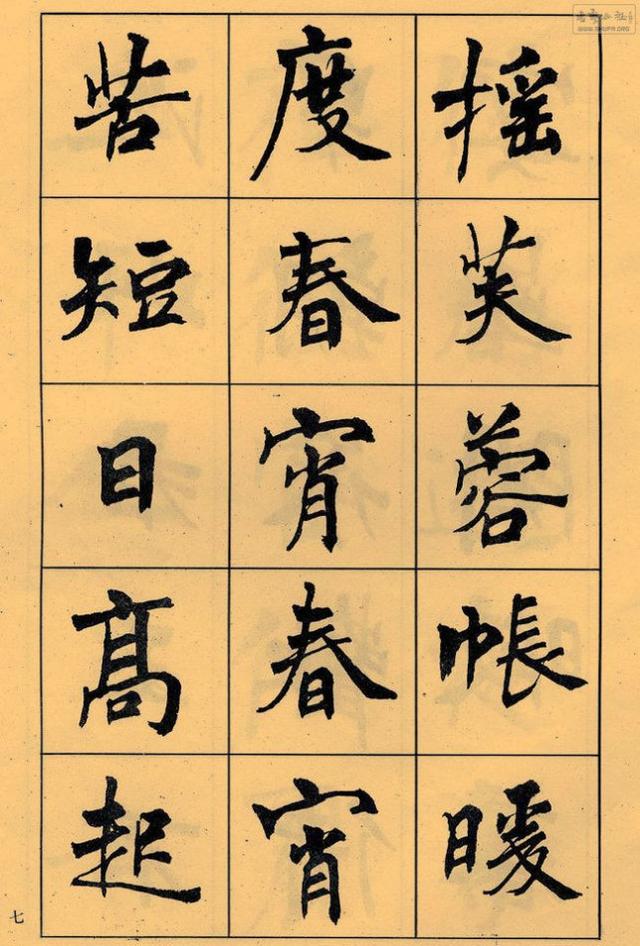 搖芙蓉帳暖
度春宵春宵
苦短日髙起
七